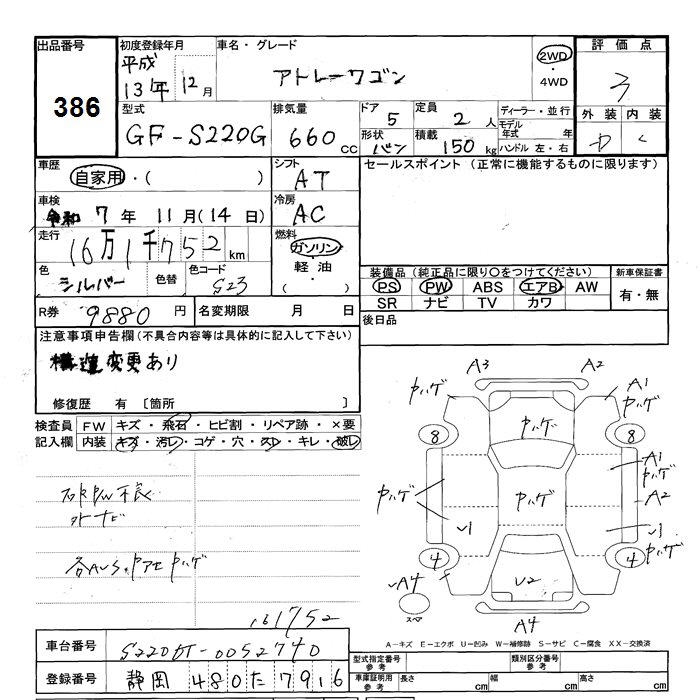 出品番号
386
初度登録年月
平成
13年 12月
車名・グレード
アトレーワゴン
2WD
・
4WD
評価点
3
型式
GF-S220G
排気量
660 cc
ドア
5
定員
2 人
ディーラー・並行
モデル
年式 年
ハンドル 左・右
形状
バン
積載
150 kg
外装 内装
D C
車歴
自家用・( )
シフト
AT
セールスポイント (正常に機能するものに限ります)
車検
令和 7 年 11 月(14 日)
冷房
AC
走行
16万1千752 km
燃料
ガソリン
軽油
・( )
色
シルバー
色替
色コード
S23
装備品 (純正品に限り○をつけてください)
PS PW ABS エアB AW
SR ナビ TV カワ
新車保証書
有・無
R券
9880 円
名変期限 月 日
後日品
注意事項申告欄(不具合内容等は具体的に記入して下さい)
構造変更あり
修復歴 有 〔箇所 〕
検査員
記入欄
FW キズ・飛石・ヒビ割・リペア跡・×要
内装 キズ・汚レ・コゲ・穴・スレ・キレ・破レ
右R P/W不良
外ナビ
161752
A3 A2
A1
ヤハゲ
ヤハゲ
ヤハゲ
8 8
A1
ヤハゲ
ヤハゲ
ヤハゲ
A2
4 4
ヤハゲ
A4
U2
スペア
A4
A－キズ E－エクボ U－凹み W－補修跡 S－サビ C－腐食 XX－交換済
車台番号
S220G-0052740
登録番号
静岡 480 た 7916
型式指定番号
参考
類別区分番号
参考
車庫証明用
参考
長さ cm 幅 cm 高さ cm